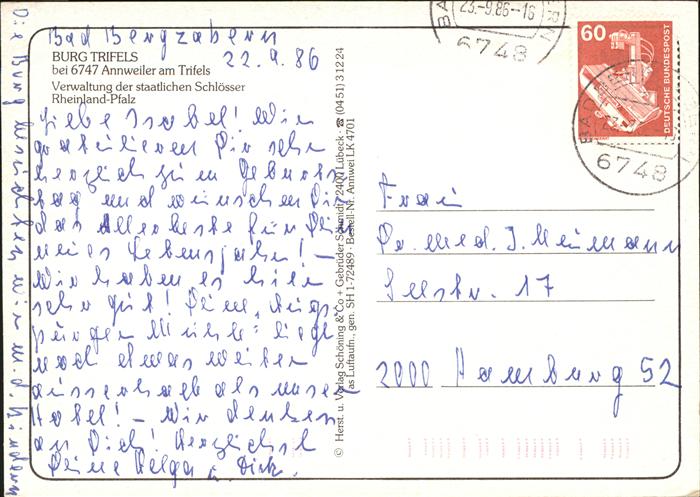 Bad Bergzabern
22.9.86
BURG TRIFELS
bei 6747 Annweiler am Trifels
Verwaltung der staatlichen Schlösser
Rheinland-Pfalz
Liebe Isabel! Wir
gratulieren Dir sehr
herzlich zum Geburts
tag und wünschen Dir
das Allerbeste für Dein
neues Lebensjahr! –
Wir haben es hier
sehr gut! Deine
liegt
noch etwas weiter
ausserhalb als unser
Hotel! – Wir denken
an Dich! Herzlichst
Deine Helga u. Dirk.
Die Burg wir m. d. Kindern
© Herst. u. Verlag Schöning & Co + Gebrüder Schmidt, 2400 Lübeck · ☎ (0451) 31224
als Luftaufn., gen. SH 1-72489 · Bestell-Nr. Annwei LK 4701
23.-9.86-16
6748
60
DEUTSCHE BUNDESPOST
6748
Frau
Dr. med. I. Neumann
Seestr. 17
2000 Hamburg 52